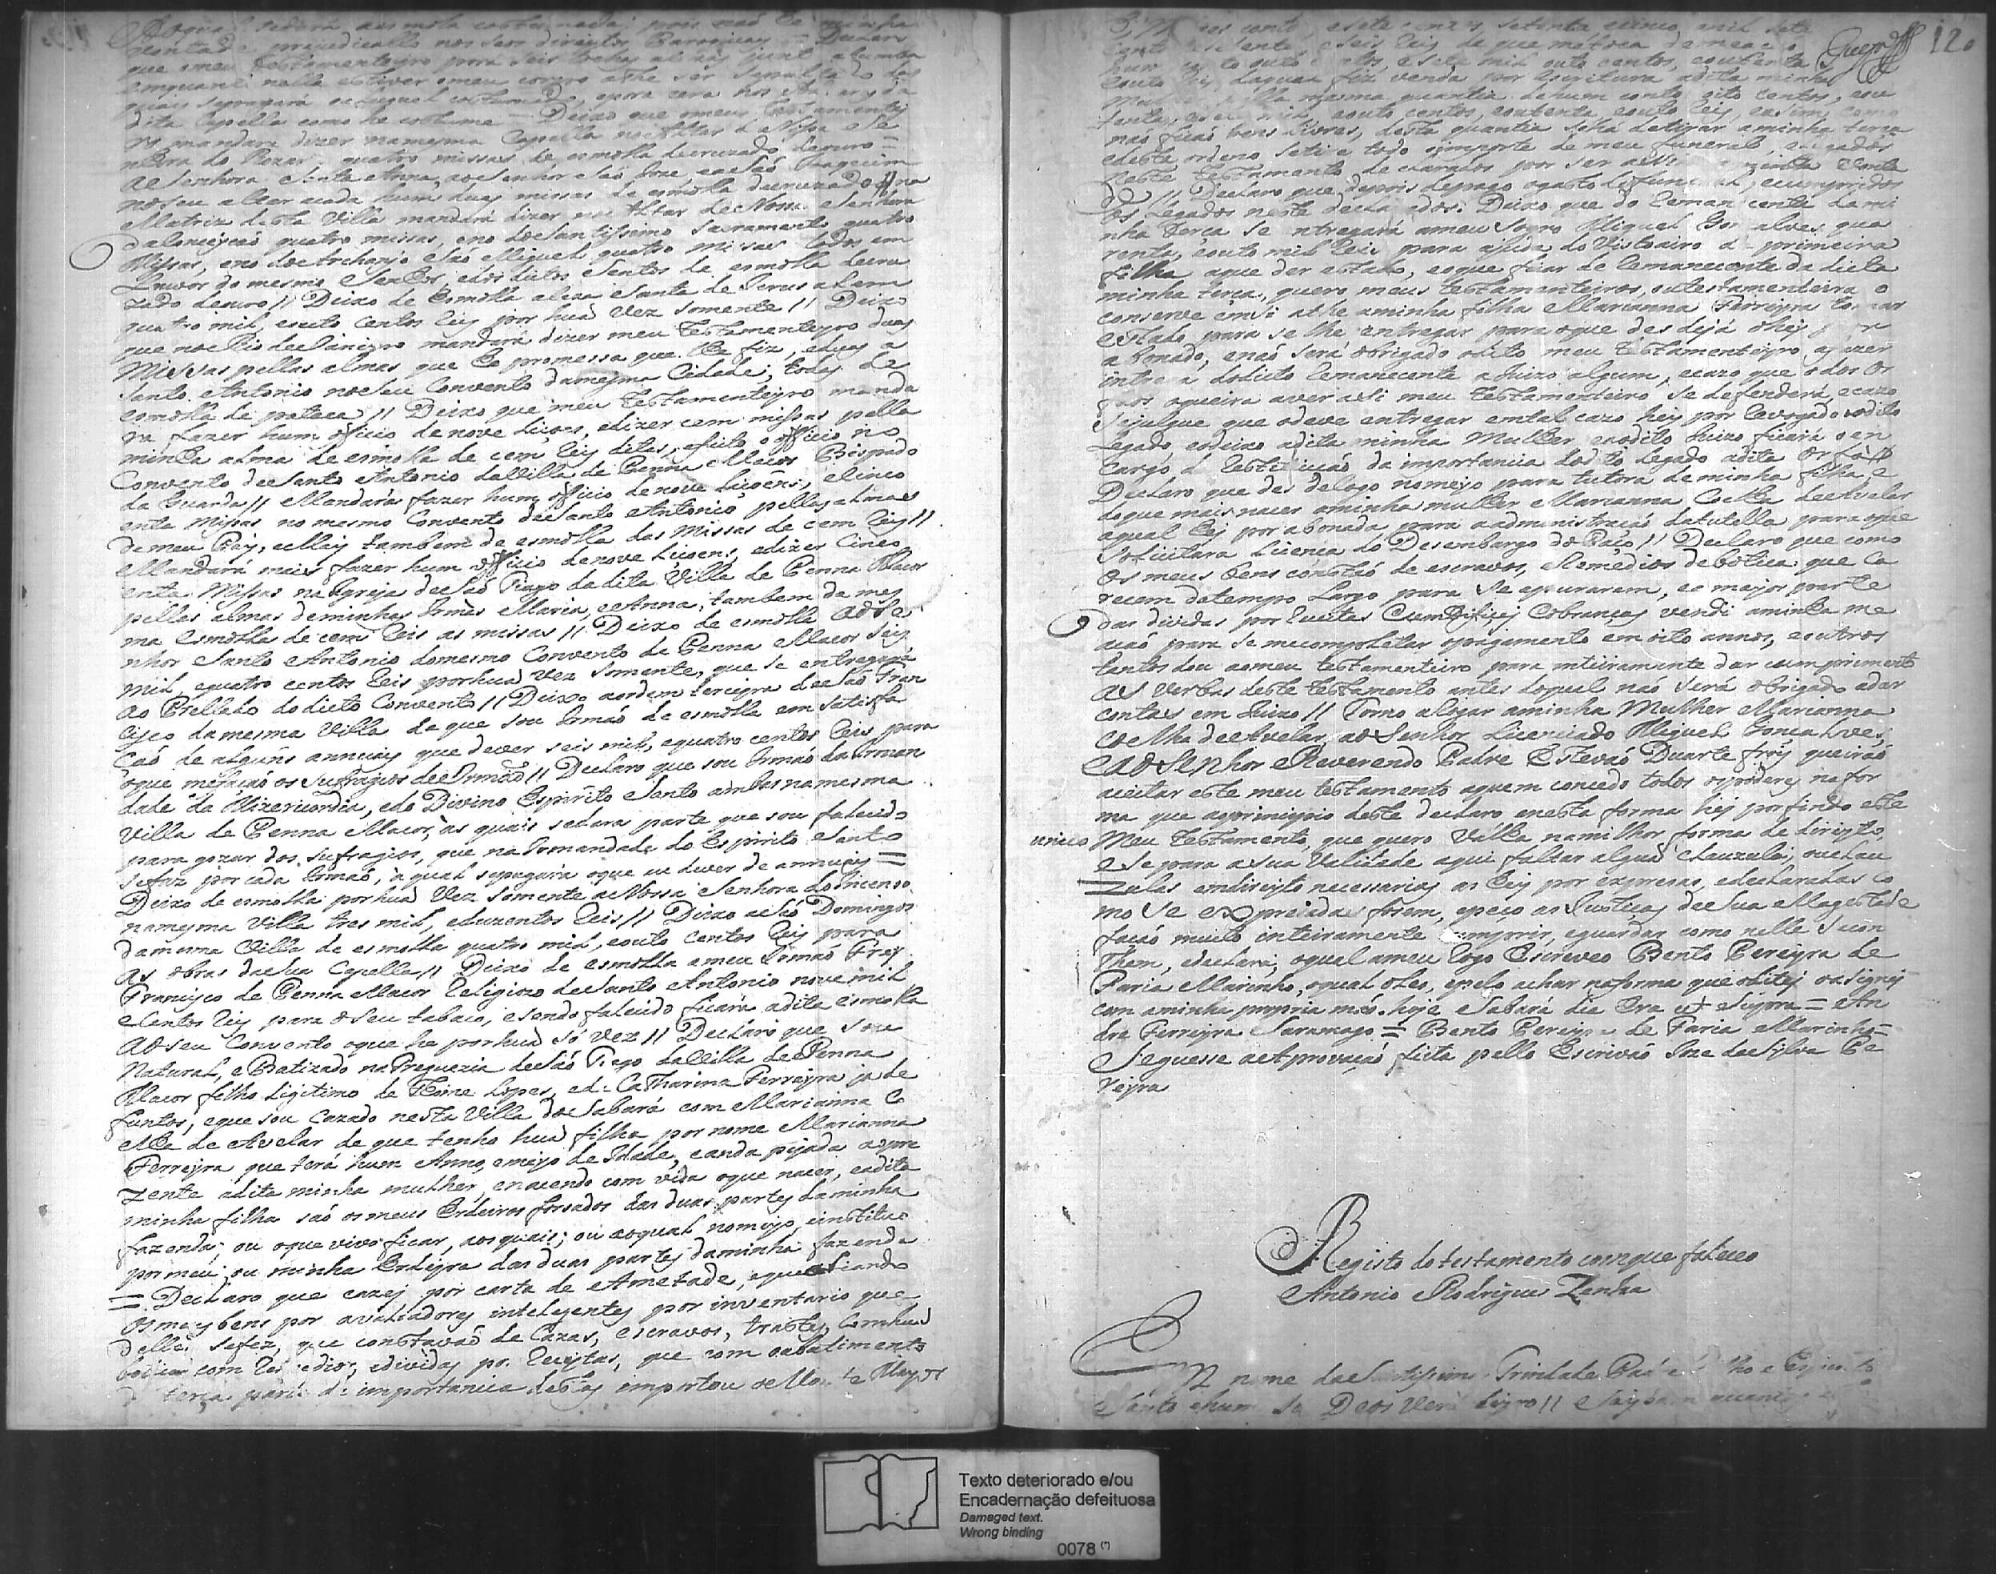 sedará a esmolla costumada; pois naõ he minha
vontade prejudicallo nos seos direytos Parroquays = Declaro
que o meu testamenteyro porá seis tochas
emquanto nella estiver o meu corpo athe ser sepultado das
quais sepagará o aluguel costumado, e para cera
dita Capella como he costume = Deixo que o meu Testamentey
ro mandara dizer na mesma Capella no Altar de Nossa Se
nhora do Rozar. quatro missas de esmolla de cruzado de ouro =
A Senhora Santa Anna, ao Senhor Saõ Joze, e a Saõ Joaquim
no seu altar a cada hum duas missas de esmolla de cruzado // na
Matriz desta Villa mandará dizer no Altar de Nossa Senhora
da Conceyçaõ quatro missas, e no do Santissimo Sacramento quatro
Missas, e no do Archanjo Saõ Miguel quatro missas todos em
Louvor do mesmo Senhor, e dos ditos Santos de esmolla de cru
zado de ouro // Deixo de Esmolla a Caza Santa de Jerusalem
quatro mil, e outo centos Reis por huã vez somente // Deixo
que no Rio de Janeyro mandará dizer meu Testamenteyro duas
Missas pellas almas que he promessa que lhe fiz, e duas a
Santo Antonio no Seu Convento da mesma Cidade, todas de
esmolla de pataca // Deixo que meu Testamenteyro manda
rá fazer hum officio de nove Liçoes, e dizer cem missas pella
minha alma de esmolla de cem Reis ditas, e feito o officio no
Convento de Santo Antonio da Villa de Penna Macor Bispado
da Guarda // Mandará fazer hum officio de nove Liçoens, e Cinco
enta Missas no mesmo Convento de Santo Antonio pellas almas
de meu Pay, e Mãy tambem de esmolla das Missas de cem Reis //
Mandará mais fazer hum officio de nove Liçoens, e dizer Cinco
enta Missas na Igreja de Saõ Tiago da dita Villa de Penna Macor
pellas almas de minhas Irmãs Maria, e Anna, tambem da mes
ma Esmolla de cem Reis as missas // Deixo de esmolla ao Se
nhor Santo Antonio do mesmo Convento de Penna Macor Seis
mil, e quatro centos Reis por huã Vez Somente, que se entregará
ao Prellado do dito Convento // Deixo a ordem terceyra de Saõ Fran
cisco da mesma Villa de que sou Irmaõ de esmolla em satisfa
çaõ de alguns annuais que dever seis mil, e quatro centos Reis para
o que me façaõ os Sufragios de Irmaõ // Declaro que sou Irmaõ da Irman
dade da Mizericordia, e do Divino Espirito Santo ambas na mesma
Villa de Penna Macor, as quais se dara parte que sou falecido
para gozar dos Sufragios, que na Irmandade do Espirito Santo
se faz por cada Irmaõ, a qual sepagará o que eu dever de annuais =
Deixo de esmolla por huã Vez Somente a Nossa Senhora do Incenso
na mesma Villa tres mil, e duzentos Reis // Deixo a Saõ Domingos
da mesma Villa de esmolla quatro mil, e outo centos Reis para
as obras da Sua Capella // Deixo de esmolla a meu Irmaõ Frey
Francisco de Penna Macor Religiozo de Santo Antonio nove mil
e Centos Reis para o Seu tabaco, e sendo falecido ficará a dita esmolla
ao seu Convento o que he por huã Só Vez // Declaro que Sou
Natural, e Batizado na Freguezia de Saõ Tiago da Villa de Penna
Macor filho Ligitimo de Lopes, e de Catharina Ferreyra ja de
funtos, e que sou Cazado nesta Villa do Sabará com Marianna Co
elha de Avelar de que tenho huã filha por nome Marianna
Ferreyra que terá hum Anno, e meyo de Idade, e anda pejada a prê
zente a dita minha mulher, e nacendo com vida o que nacer, e a dita
minha filha saõ os meus Erdeiros forsados das duas partes da minha
fazenda, ou o que vivo ficar, aos quais, ou ao qual nomeyo, e instituo
por meu, ou minha Erdeyra das duas partes da minha fazenda
= Declaro que cazey por carta de Ametade, e que
os mays bens por avaliadores inteligentes por inventario que
delles se fez, que constavaõ de Cazas, escravos, trastes, e huã
botica com remedios, e dividas por Receytas, que com o abatimento
da terça parte da importancia destas importou o Monte Mayor

Guerª
120
setenta e cinco mil sete
Reis de que me toca de mea
outo centos, e sete mil outo centos, e outenta
e outo Reis da qual fiz venda por escritura a dita minha
Mulher pella mesma quantia de hum conto oito centos, e ou
tenta, e sete mil, e outo centos, e outenta e outo Reis, e assim como
naõ ficaõ bens Livres, desta quantia se há de tirar a minha terça
e desta ordeno se tire todo o importe de meu funeral, e Legados
neste Testamento declarados por ser minha Vonta
de // Declaro que depois de pago o gasto do funeral, e cumpridos
os Legados neste declarados. Deixo que do Remanecente da mi
nha terça se entregará a meu Sogro Miguel Gonçalves qua
renta, e outo mil Reis para ajuda do Vistoairo da primeira
filha a que der estado, e o que ficar do Remanecente da dita
minha terça, quero meus testamenteyros, ou testamenteira o
conserve em si athe a minha filha Marianna Ferreyra tomar
estado para se lhe entregar para o que des dejá o hey por
abonado, e naõ será obrigado o dito meu testamenteyro a fazer
entrega do dito Remanecente a Juizo algum, e cazo que o dos Or
faos o queira aver a si meu Testamenteiro se defenderá, e cazo
se julgue que o deve entregar em tal cazo hey por revogado o dito
Legado, e o deixo a dita minha Mulher, e o dito Juizo ficará sem
Cargo da Restituiçaõ da importancia do dito Legado a dita Orfaã //
Declaro que des de Logo nomeyo para tutora de minha filha, e
do que mais nacer a minha mulher Marianna Coelha de Avelar
a qual hey por abonada para a administraçaõ da tutella para o que
Solicitara Licença do Desembargo do Paço // Declaro que como
os meus bens constaõ de escravos, e Remedios de botica que Ca
recem de tempo Largo para se apurarem, e a mayor parte
das dividas por Receitas Cobranças vendi a minha me
açaõ para se me completar o pagamento em oito annos, e outros
tantos dou ao meu testamenteiro para inteiramente dar cumprimento
as verbas deste testamento antes do qual naõ será obrigado a dar
contas em Juizo // Torno a Rogar a minha Mulher Marianna
Coelha de Avelar, ao Senhor Licenciado Miguel Goncalves,
e ao Senhor Reverendo Padre Estevaõ Duarte Froes queiraõ
aceitar este meu testamento a quem concedo todos os poderes na for
ma que a principio deste declaro e nesta forma hey por findo este
Meu Testamento, que quero Valha na milhor forma de direyto,
e se para a sua Validade aqui faltar algũa Clauzula, ou clau
zulas em direyto necessarias as hey por expressas, e declaradas Co
mo se expresadas fosem, e peço as Justiças de Sua Magestade
façaõ muito inteiramente cumprir, e guardar como nelle Se con
them, e declara, o qual a meu Rogo Escreveo Bento Pereyra de
Faria Marinho, o qual o leo, e pelo achar na forma que o ditey o asigney
com a minha propria maõ hoje Sabará die Era ut supra = An
dre Ferreyra Saramago = Bento Pereyra de Faria Marinho =
Seguesse a Aprovaçaõ feita pello Escrivaõ Joze da Sylva Pe
reyra

Registo do testamento com que faleceo
Antonio Rodrigues Zenha

Em nome da Santissima Trindade Padre Filho e Espirito
Santo e hum Só Deos Verdadeyro //

Texto deteriorado e/ou
Encadernação defeituosa
Damaged text.
Wrong binding
0078 (*)